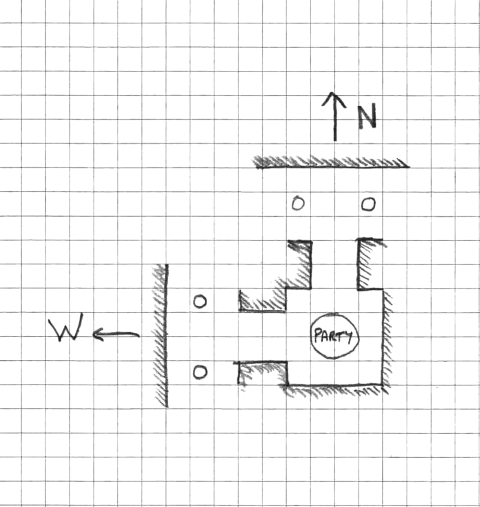 N
W
PARTY